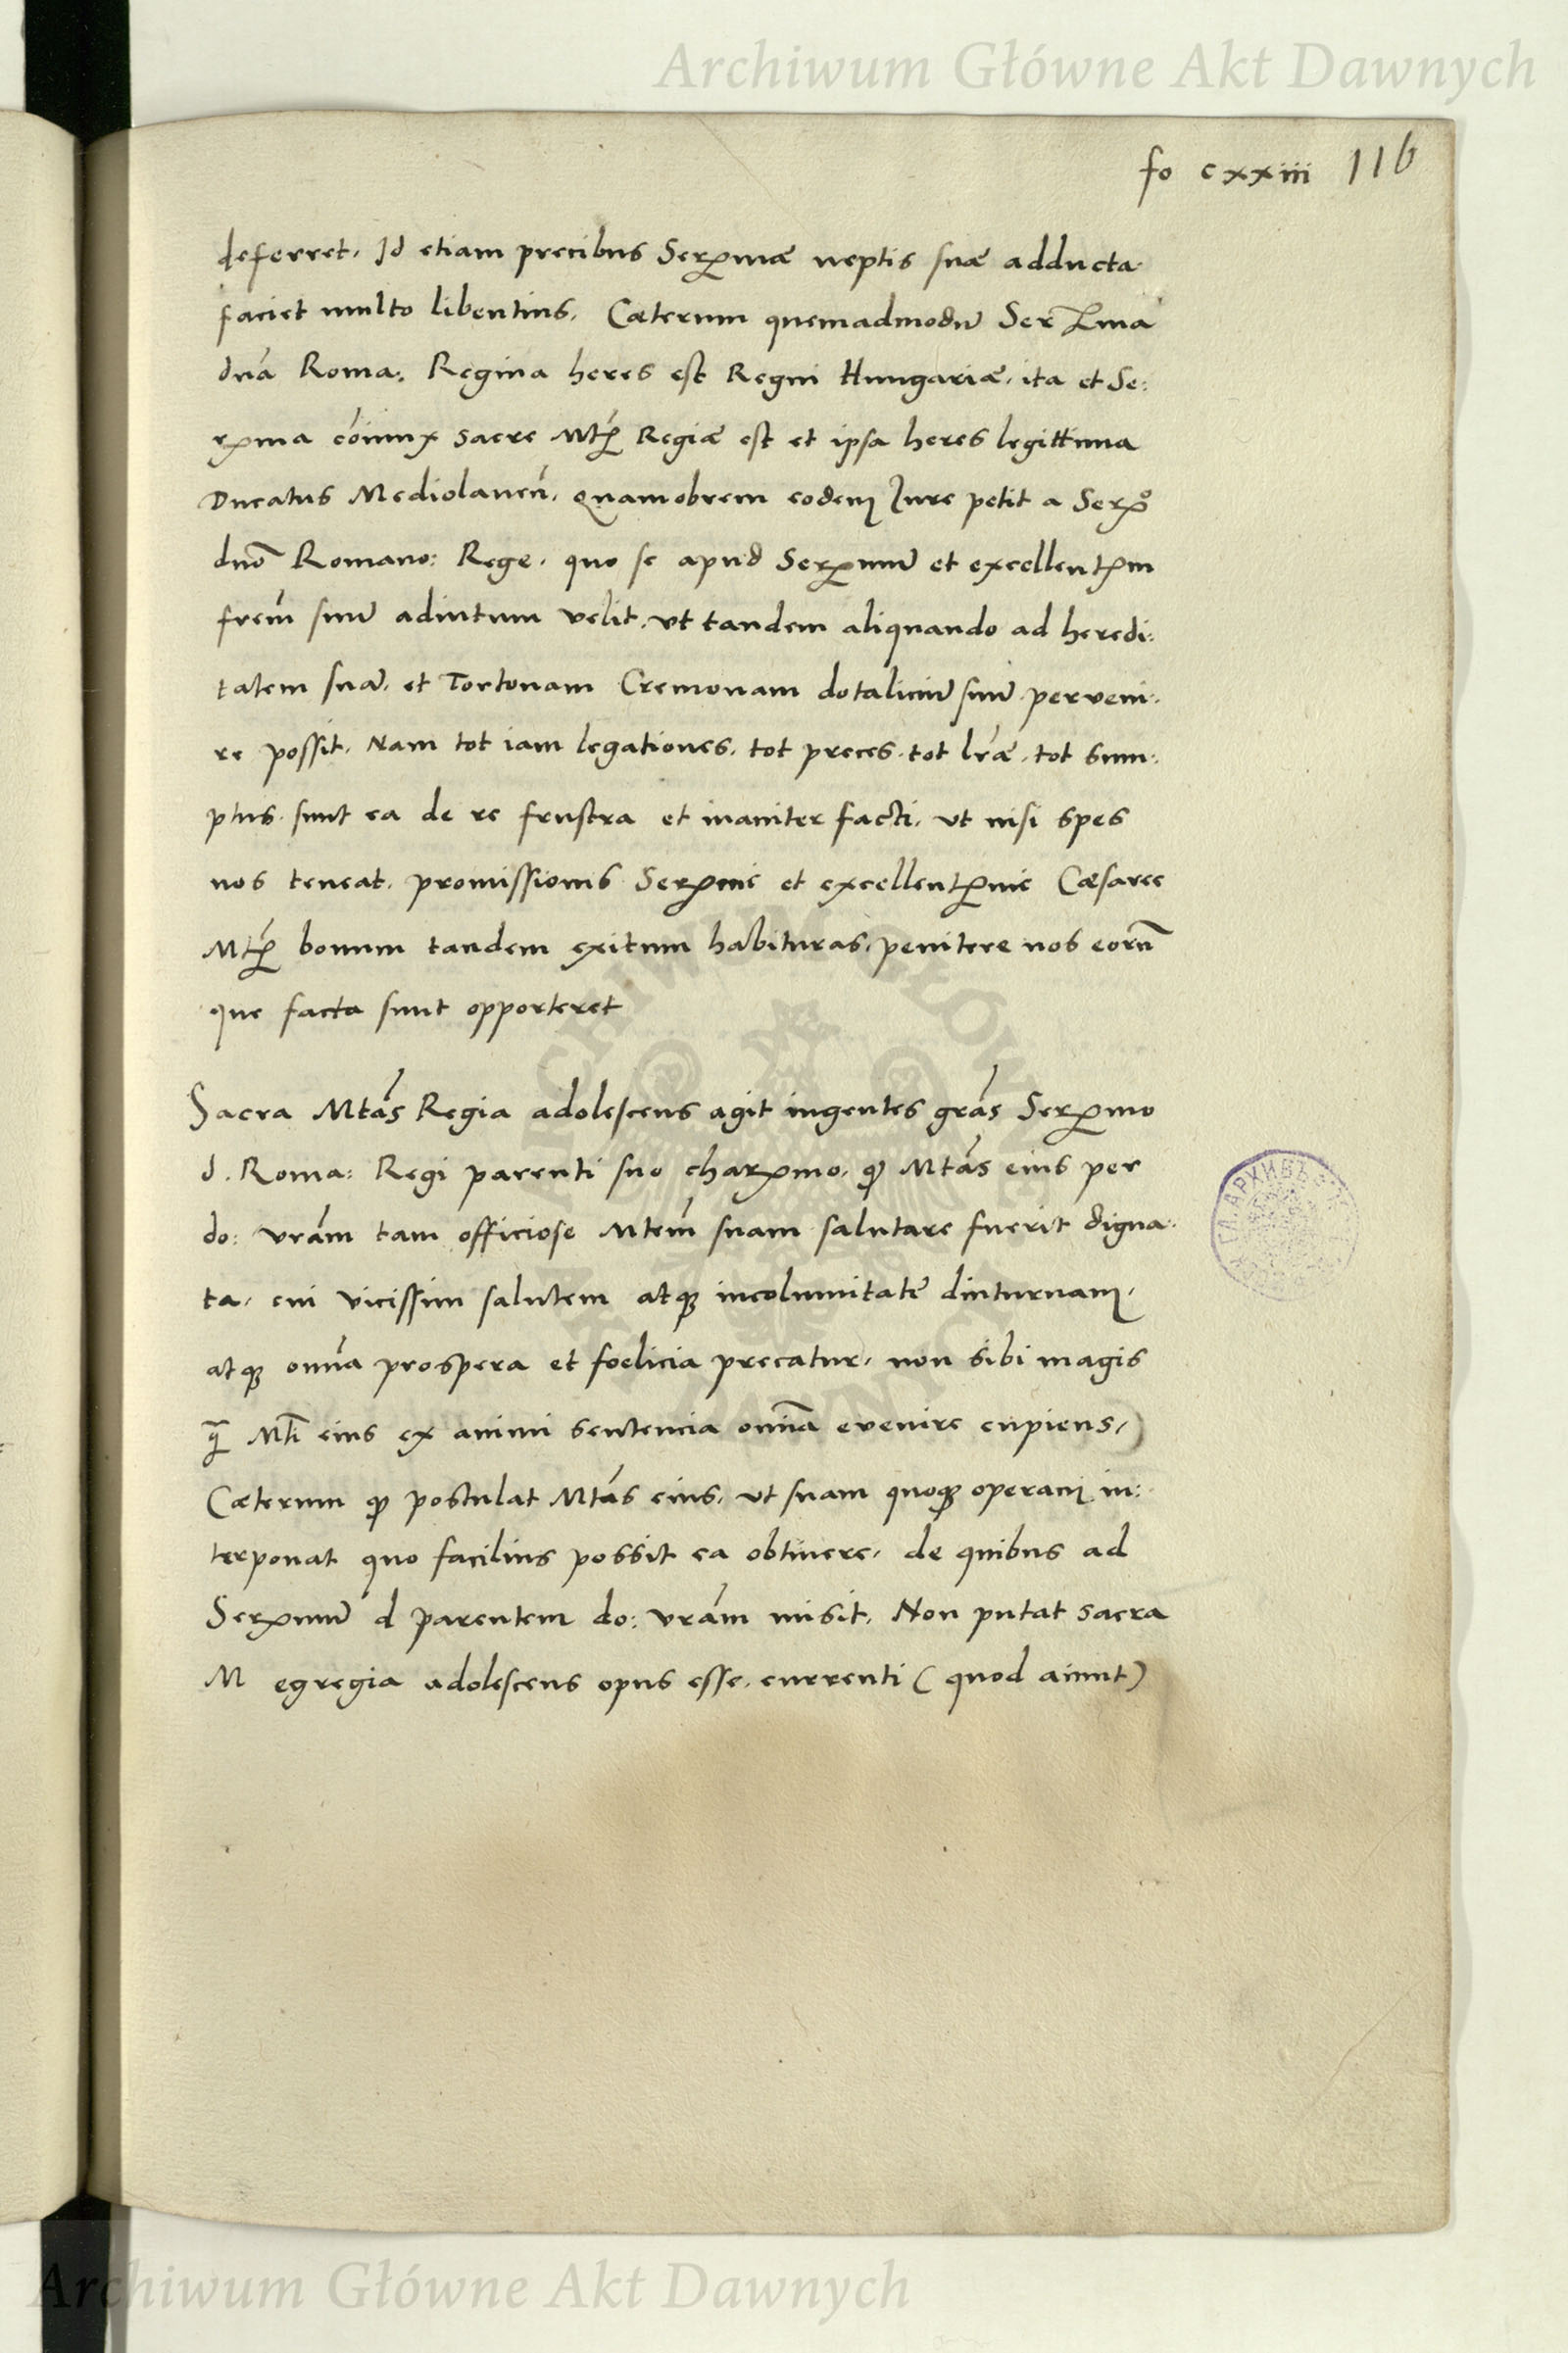 Archiwum Główne Akt Dawnych
fo cxxiii 116
deferret. Id etiam precibus Serꝫmæ neptis suæ adducta
faciet multo libentius. Cæterum quemadmodũ Serꝫma
dnã Roma: Regina heres est Regni Hungariæ, ita et Se:
rꝫma cõiunx sacre Mtꝭ Regiæ est et ipsa heres legittima
Ducatus Mediolaneñ. Quamobrem eodem Jure petit a Serꝫº
dnõ Romano: Rege, quo se apud Serꝫmũ et excellentꝫm
frem̃ suũ adiutum velit, vt tandem aliquando ad heredi:
tatem suã, et Tortonam Cremonam dotaliciũ suũ perveni:
re possit. Nam tot iam legationes, tot preces, tot lræ̃, tot sum:
ptus sunt ea de re frustra et inaniter facti, vt nisi spes
nos teneat, promissionis Serꝫme et excellentꝫme Cæsaree
Mtꝭ bonum tandem exitum habituras, penitere nos eorũ
que facta sunt opporteret
Sacra Mtãs Regia adolescens agit ingentes grãs Serꝫmo
d. Roma: Regi parenti suo charꝫmo, ꝙ Mtãs eius per
do: vrãm tam officiose Mtem̃ suam salutare fuerit digna:
ta, cui vicissim salutem atqꝫ incolumitatẽ diuturnam,
atqꝫ omñia prospera et foelicia precatur, non sibi magis
q̃ Mtĩ eius ex animi sentencia omñia evenire cupiens,
Cæterum ꝙ postulat Mtãs eius, vt suam quoqꝫ operam in:
terponat quo facilius possit ea obtinere, de quibus ad
Serꝫmũ d parentem do: vrãm misit, Non putat sacra
M egregia adolescens opus esse, currenti (quod aiunt)
Archiwum Główne Akt Dawnych